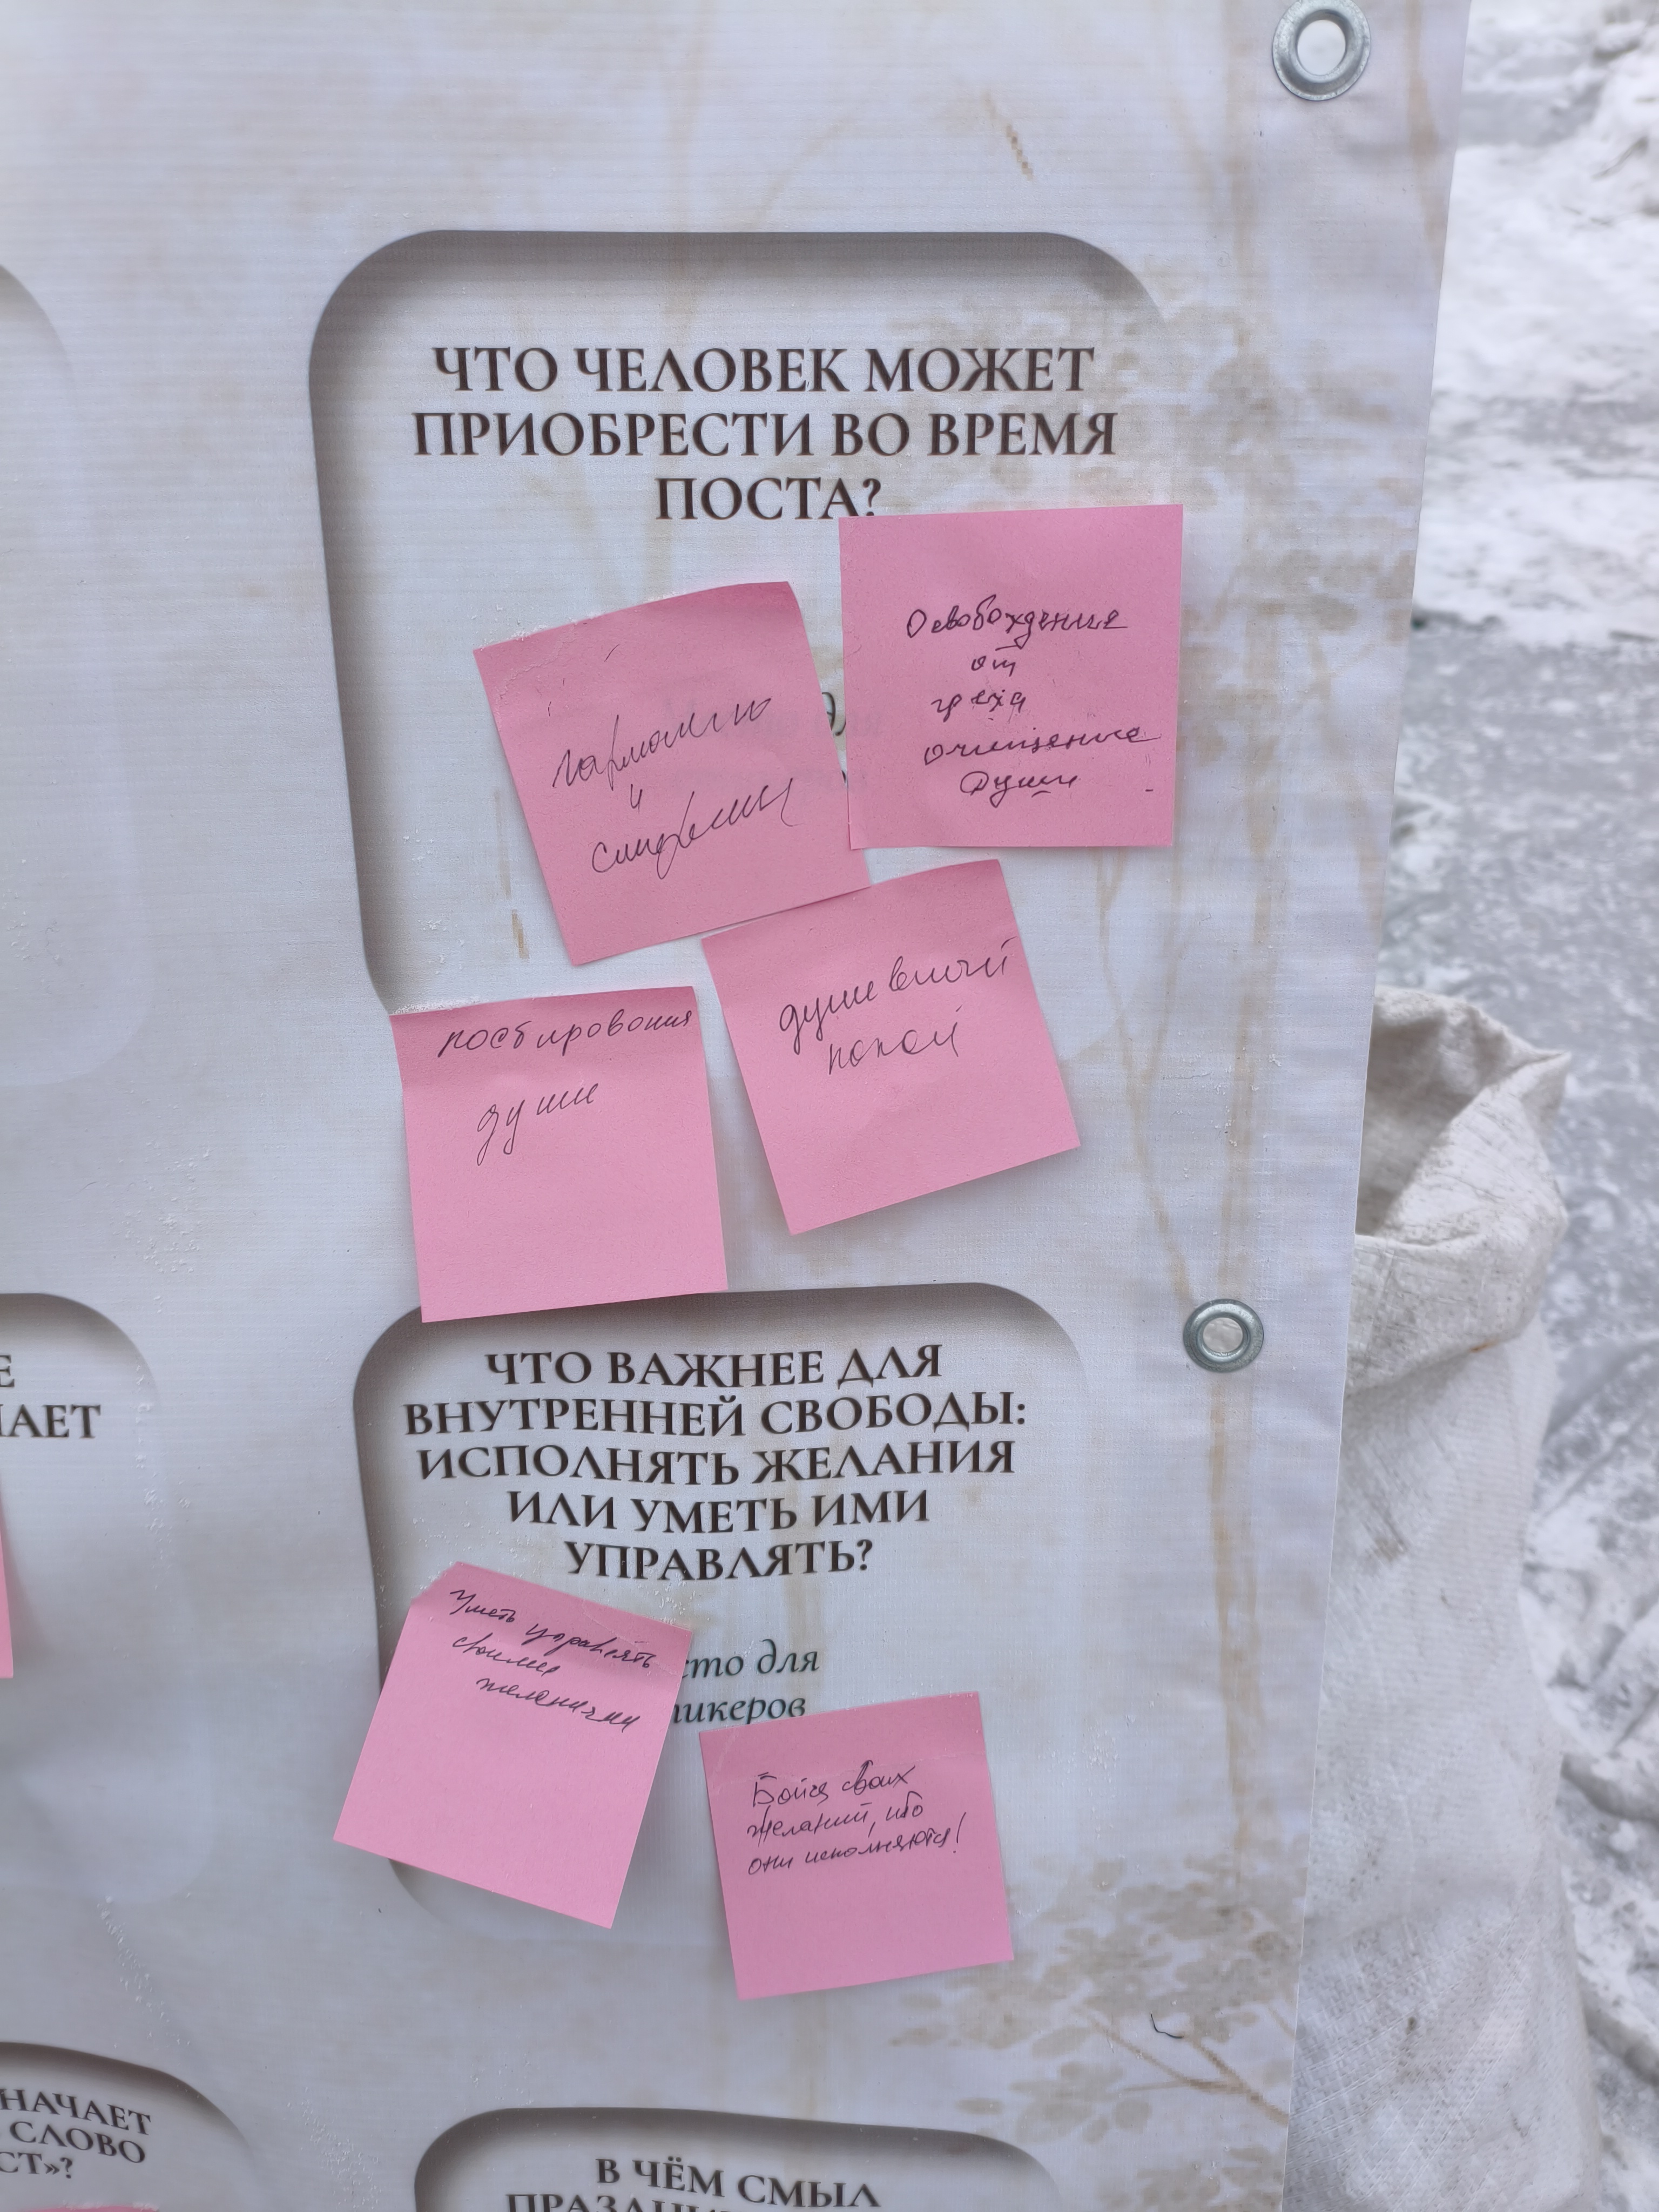 ЧТО ЧЕЛОВЕК МОЖЕТ
ПРИОБРЕСТИ ВО ВРЕМЯ
ПОСТА?
Освобождение
от
греха
очищение
Души
гармонию
и
душевный
покой
души
ЧТО ВАЖНЕЕ ДЛЯ
ВНУТРЕННЕЙ СВОБОДЫ:
ИСПОЛНЯТЬ ЖЕЛАНИЯ
ИЛИ УМЕТЬ ИМИ
УПРАВЛЯТЬ?
Уметь управлять
своими
желаниями
сто для
тикеров
Бойся своих
желаний, ибо
они исполняются!
НАЧАЕТ
СЛОВО
СТ»?
В ЧЁМ СМЫСЛ